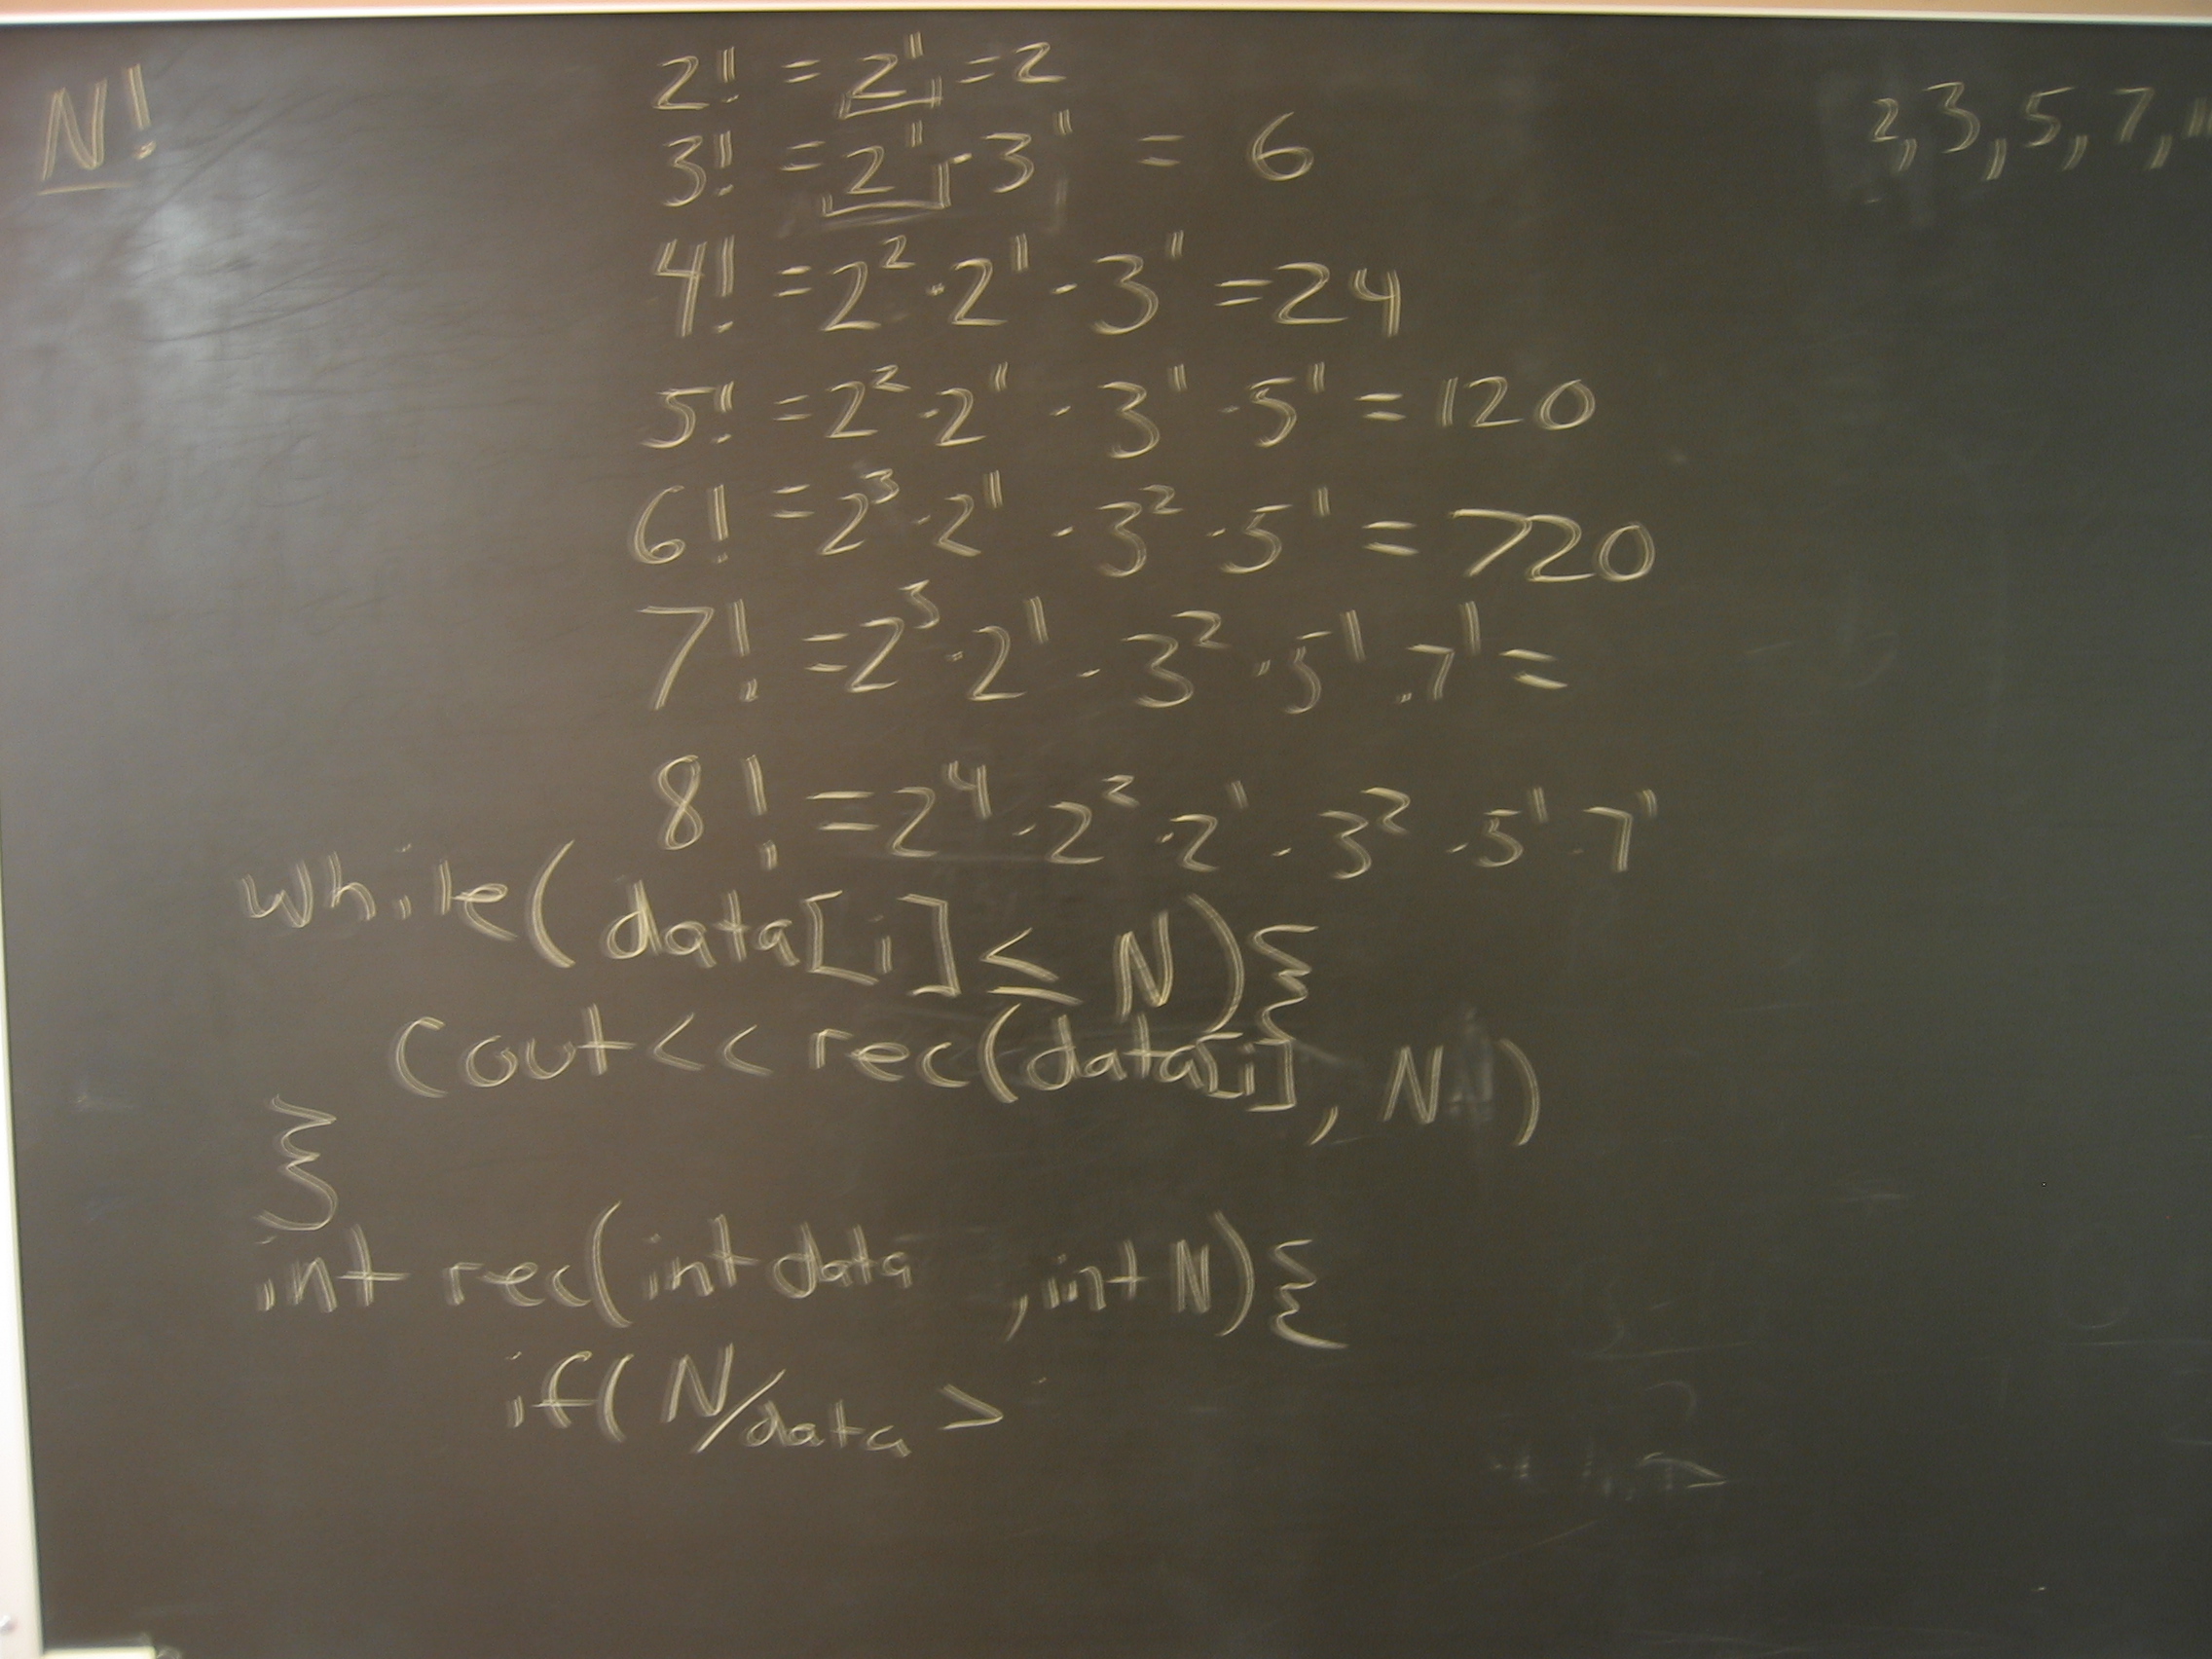 N!
2! = 2¹ = 2
2, 3, 5, 7, 11
3! = 2¹ · 3¹ = 6
4! = 2² · 2¹ · 3¹ = 24
5! = 2² · 2¹ · 3¹ · 5¹ = 120
6! = 2³ · 2¹ · 3² · 5¹ = 720
7! = 2³ · 2¹ · 3² · 5¹ · 7¹ =
8! = 2⁴ · 2² · 2¹ · 3² · 5¹ · 7¹
while(data[i] ≤ N){
cout<< rec(data[i], N)
}
int rec(int data , int N){
if( N/data >